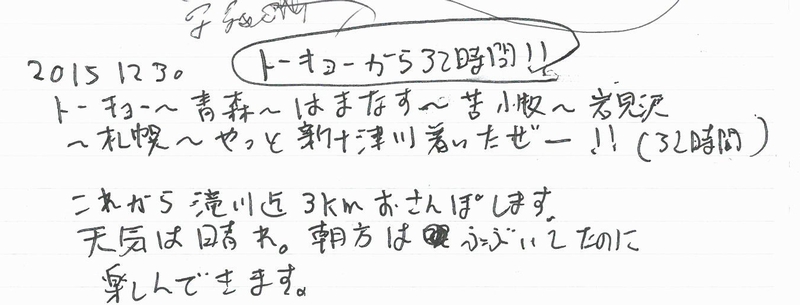 2015 12 30 トーキョーから32時間!!
トーキョー〜青森〜はまなす〜苫小牧〜岩見沢
〜札幌〜やっと新十津川着いたぜー!!(32時間)
これから滝川迄3kmおさんぽします。
天気は晴れ。朝方はふぶいてたのに
楽しんできます。